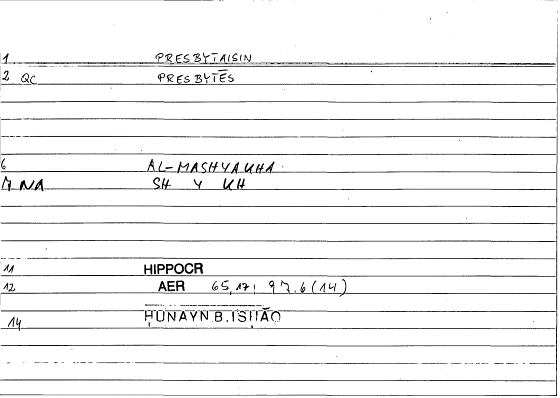 1 PRESBYTAISIN
2 QC PRESBYTĒS
6 AL-MASHYAUHA
7 NA SH Y UH
11 HIPPOCR
12 AER 65,17; 97.6 (14)
14 ḤUNAYN B. ISḤĀQ